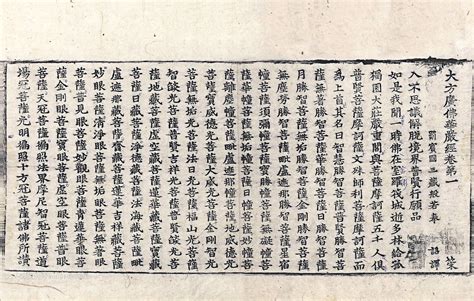 大方廣佛華嚴經卷第一 策
罽賓國三藏般若奉 詔譯
入不思議解脫境界普賢行願品
如是我聞一時佛在室羅筏城逝多林給孤
獨園大莊嚴重閣與菩薩摩訶薩五千人俱
普賢菩薩摩訶薩文殊師利菩薩摩訶薩而
爲上首其名曰智慧勝智菩薩普賢勝智菩
薩無著勝智菩薩華勝智菩薩日勝智菩薩
月勝智菩薩無垢勝智菩薩金剛勝智菩薩
無塵勞勝智菩薩毗盧遮那勝智菩薩星宿
幢菩薩須彌幢菩薩寶勝幢菩薩無礙幢菩
薩華幢菩薩無垢幢菩薩日幢菩薩妙幢菩
薩離塵幢菩薩毗盧遮那幢菩薩地威德光
菩薩寶威德光菩薩大威德光菩薩金剛智
威德光菩薩無垢光菩薩福山光菩薩
智焰光菩薩普賢吉祥光菩薩普賢焰光菩
薩地藏菩薩虛空藏菩薩蓮華藏菩薩寶藏
菩薩日藏菩薩淨德藏菩薩法印藏菩薩毗
盧遮那藏菩薩臍藏菩薩蓮華吉祥藏菩薩
妙眼菩薩清淨眼菩薩無垢眼菩薩無著眼
菩薩普見眼菩薩妙觀眼菩薩青蓮華眼菩
薩金剛眼菩薩寶眼菩薩虛空眼菩薩普眼
菩薩天冠菩薩徧照法界摩尼智冠菩薩道
場冠菩薩光明徧照十方冠菩薩諸佛所讚